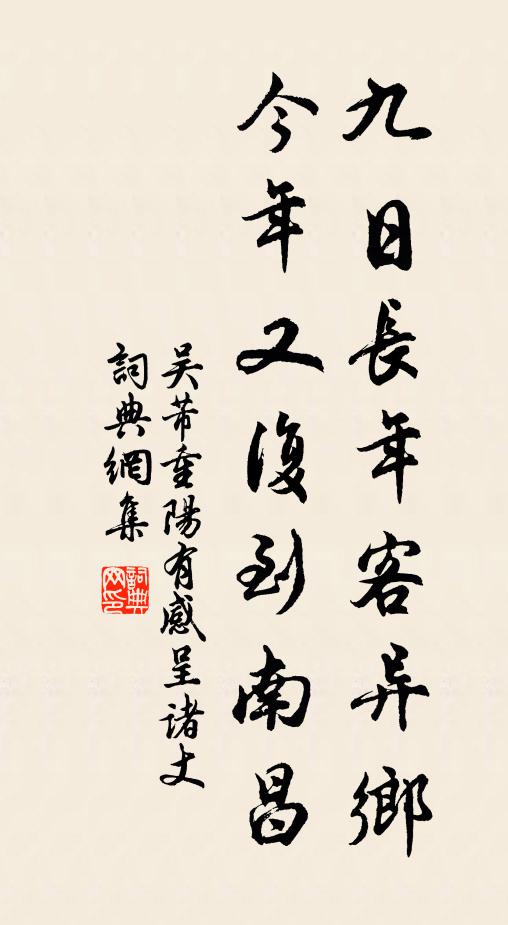 九日長年客异鄉
今年又復到南昌
吴芾重陽有感呈诸丈
詞典網集
詞典
网印